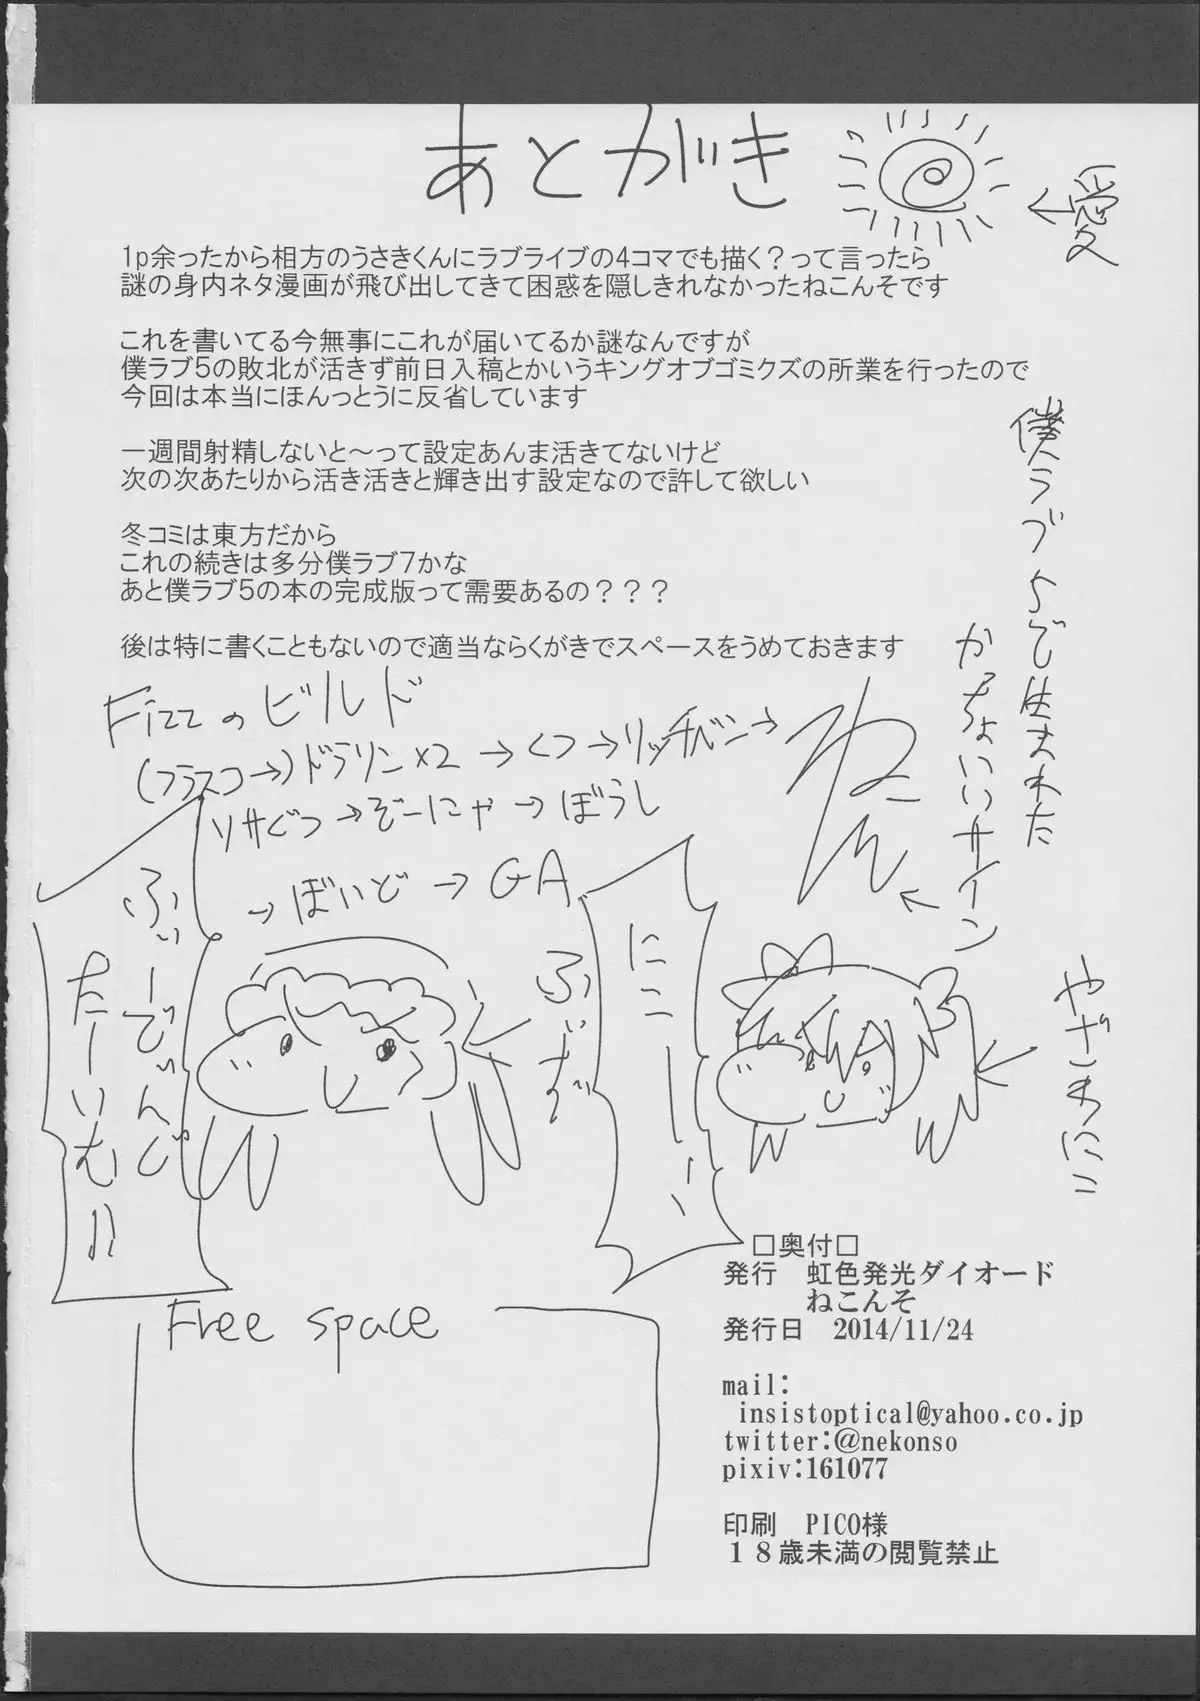 あとがき
←愛
1p余ったから相方のうさきくんにラブライブの4コマでも描く？って言ったら
謎の身内ネタ漫画が飛び出してきて困惑を隠しきれなかったねこんそです
これを書いてる今無事にこれが届いてるか謎なんですが
僕ラブ5の敗北が活きず前日入稿とかいうキングオブゴミクズの所業を行ったので
今回は本当にほんっとうに反省しています
一週間射精しないと～って設定あんま活きてないけど
次の次あたりから活き活きと輝き出す設定なので許して欲しい
冬コミは東方だから
これの続きは多分僕ラブ7かな
あと僕ラブ5の本の完成版って需要あるの？？？
後は特に書くこともないので適当ならくがきでスペースをうめておきます
僕ラブ5で生まれた
かっちょいいサイン
Fizzのビルド
(フラスコ→)ドラリン×2→くつ→リッチベン→
ソサぐつ→ぞーにゃ→ぼうし
→ぼいど→GA
ねん
ふぃーでぃんぐ
たーいむ!!
ふぃず
にこーーっ
やざわにこ
Free space
□奥付□
発行　虹色発光ダイオード
ねこんそ
発行日　2014/11/24
mail:
insistoptical@yahoo.co.jp
twitter:@nekonso
pixiv:161077
印刷　PICO様
１８歳未満の閲覧禁止